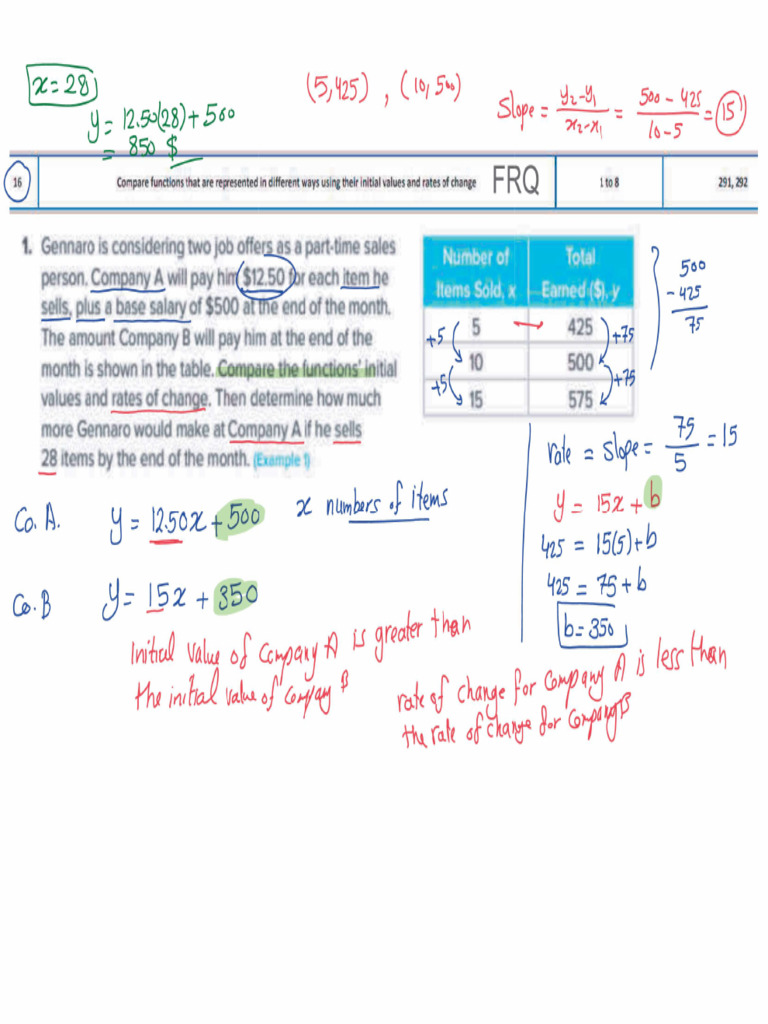 x = 28
y = 12.50(28) + 500
= 850 $
(5,425) , (10,500)
Slope = y₂-y₁ / x₂-x₁ = 500 - 425 / 10 - 5 = 15
16 Compare functions that are represented in different ways using their initial values and rates of change FRQ 1 to 8 291, 292
1. Gennaro is considering two job offers as a part-time sales
person. Company A will pay him $12.50 for each item he
sells, plus a base salary of $500 at the end of the month.
The amount Company B will pay him at the end of the
month is shown in the table. Compare the functions' initial
values and rates of change. Then determine how much
more Gennaro would make at Company A if he sells
28 items by the end of the month. (Example 1)
Number of Items Sold, x Total Earned ($), y
5 425
10 500
15 575
+5 +75
+5 +75
500
- 425
75
rate = slope = 75 / 5 = 15
y = 15x + b
425 = 15(5) + b
425 = 75 + b
b = 350
Co. A. y = 12.50x + 500 x numbers of items
Co. B y = 15x + 350
Initial value of Company A is greater than
the initial value of company B
rate of change for Company A is less than
the rate of change for Company B